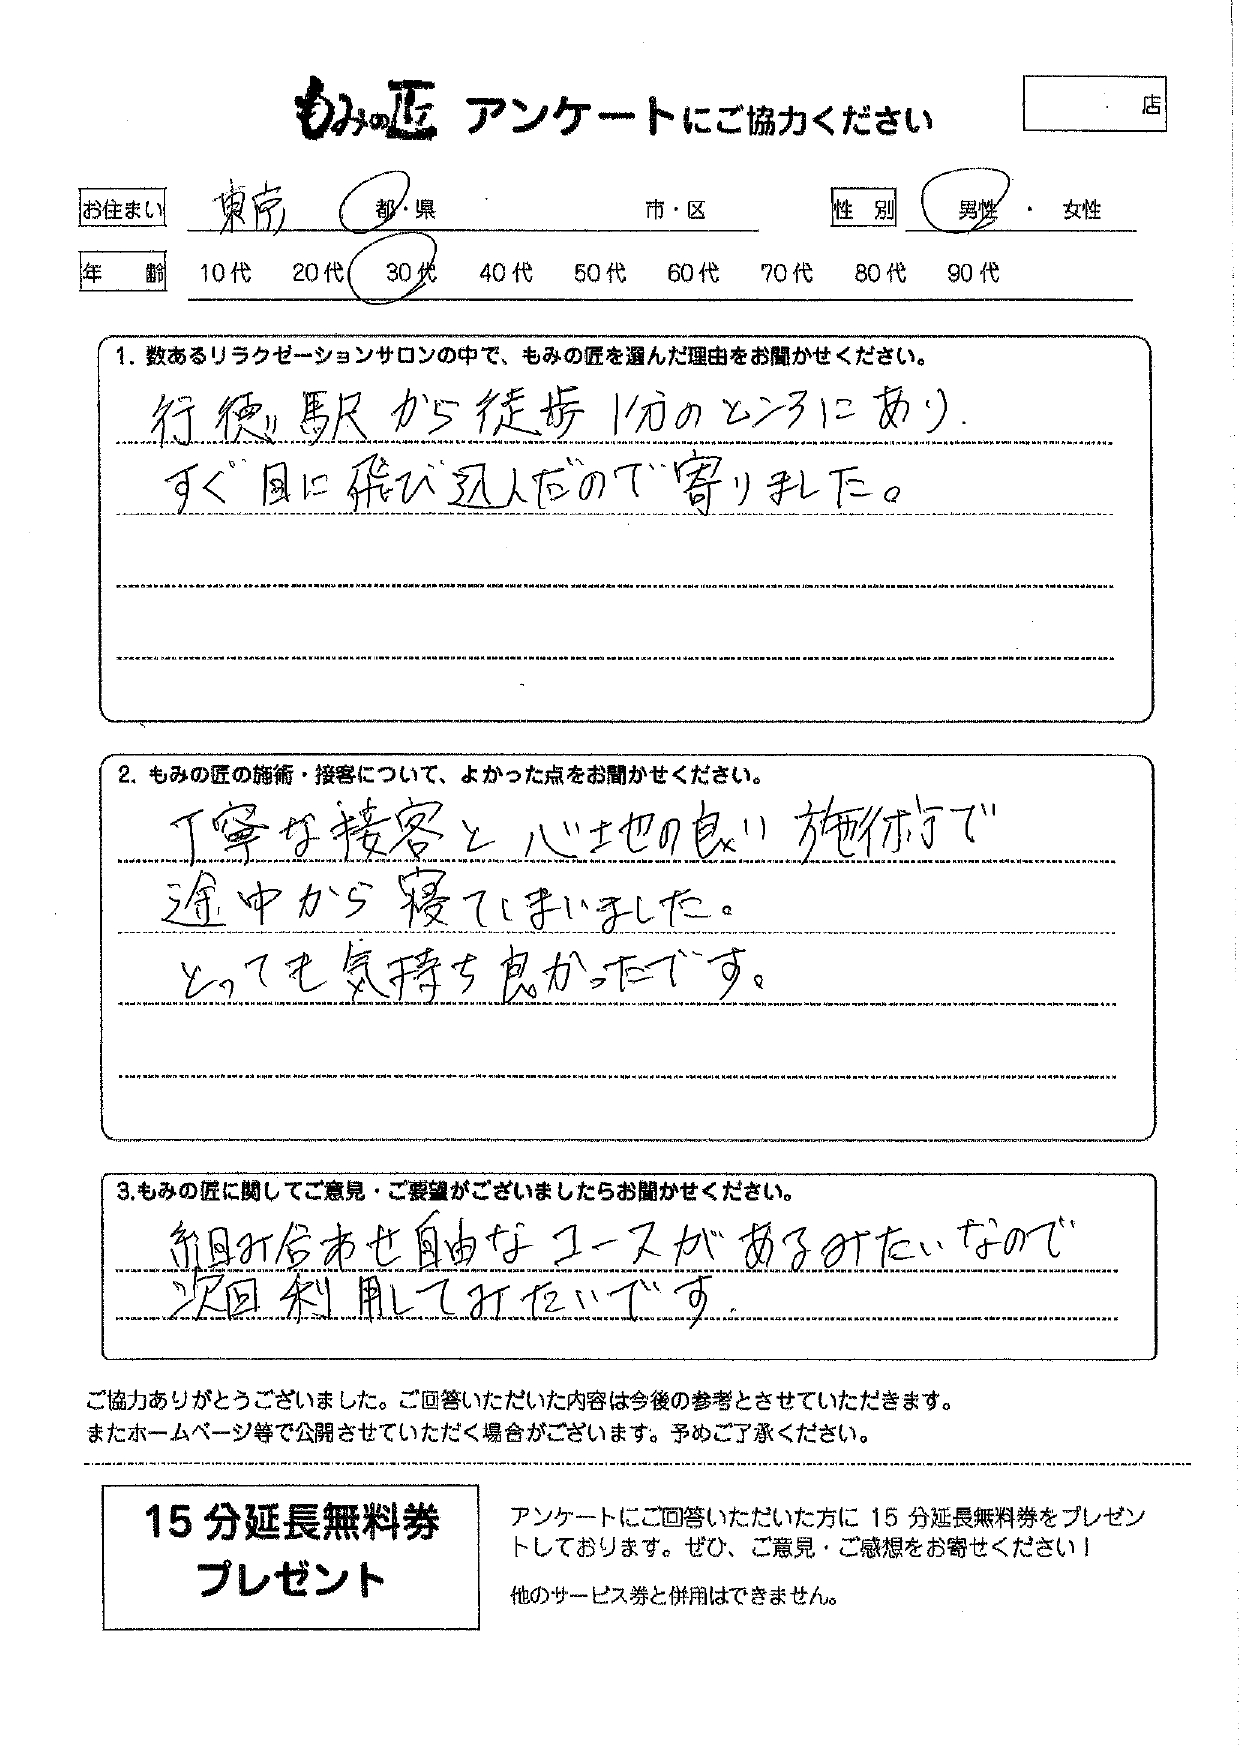 もみの匠 アンケートにご協力ください
店
お住まい 東京 都・県 市・区 性 別 男性 ・ 女性
年 齢 10代 20代 30代 40代 50代 60代 70代 80代 90代
1. 数あるリラクゼーションサロンの中で、もみの匠を選んだ理由をお聞かせください。
行徳駅から徒歩1分のところにあり
すぐ目に飛び込んだので寄りました。
2. もみの匠の施術・接客について、よかった点をお聞かせください。
丁寧な接客と心地の良い施術で
途中から寝てしまいました。
とっても気持ち良かったです。
3.もみの匠に関してご意見・ご要望がございましたらお聞かせください。
組み合わせ自由なコースがあるみたいなので
次回利用してみたいです.
ご協力ありがとうございました。ご回答いただいた内容は今後の参考とさせていただきます。
またホームページ等で公開させていただく場合がございます。予めご了承ください。
15分延長無料券
プレゼント
アンケートにご回答いただいた方に 15 分延長無料券をプレゼン
トしております。ぜひ、ご意見・ご感想をお寄せください！
他のサービス券と併用はできません。